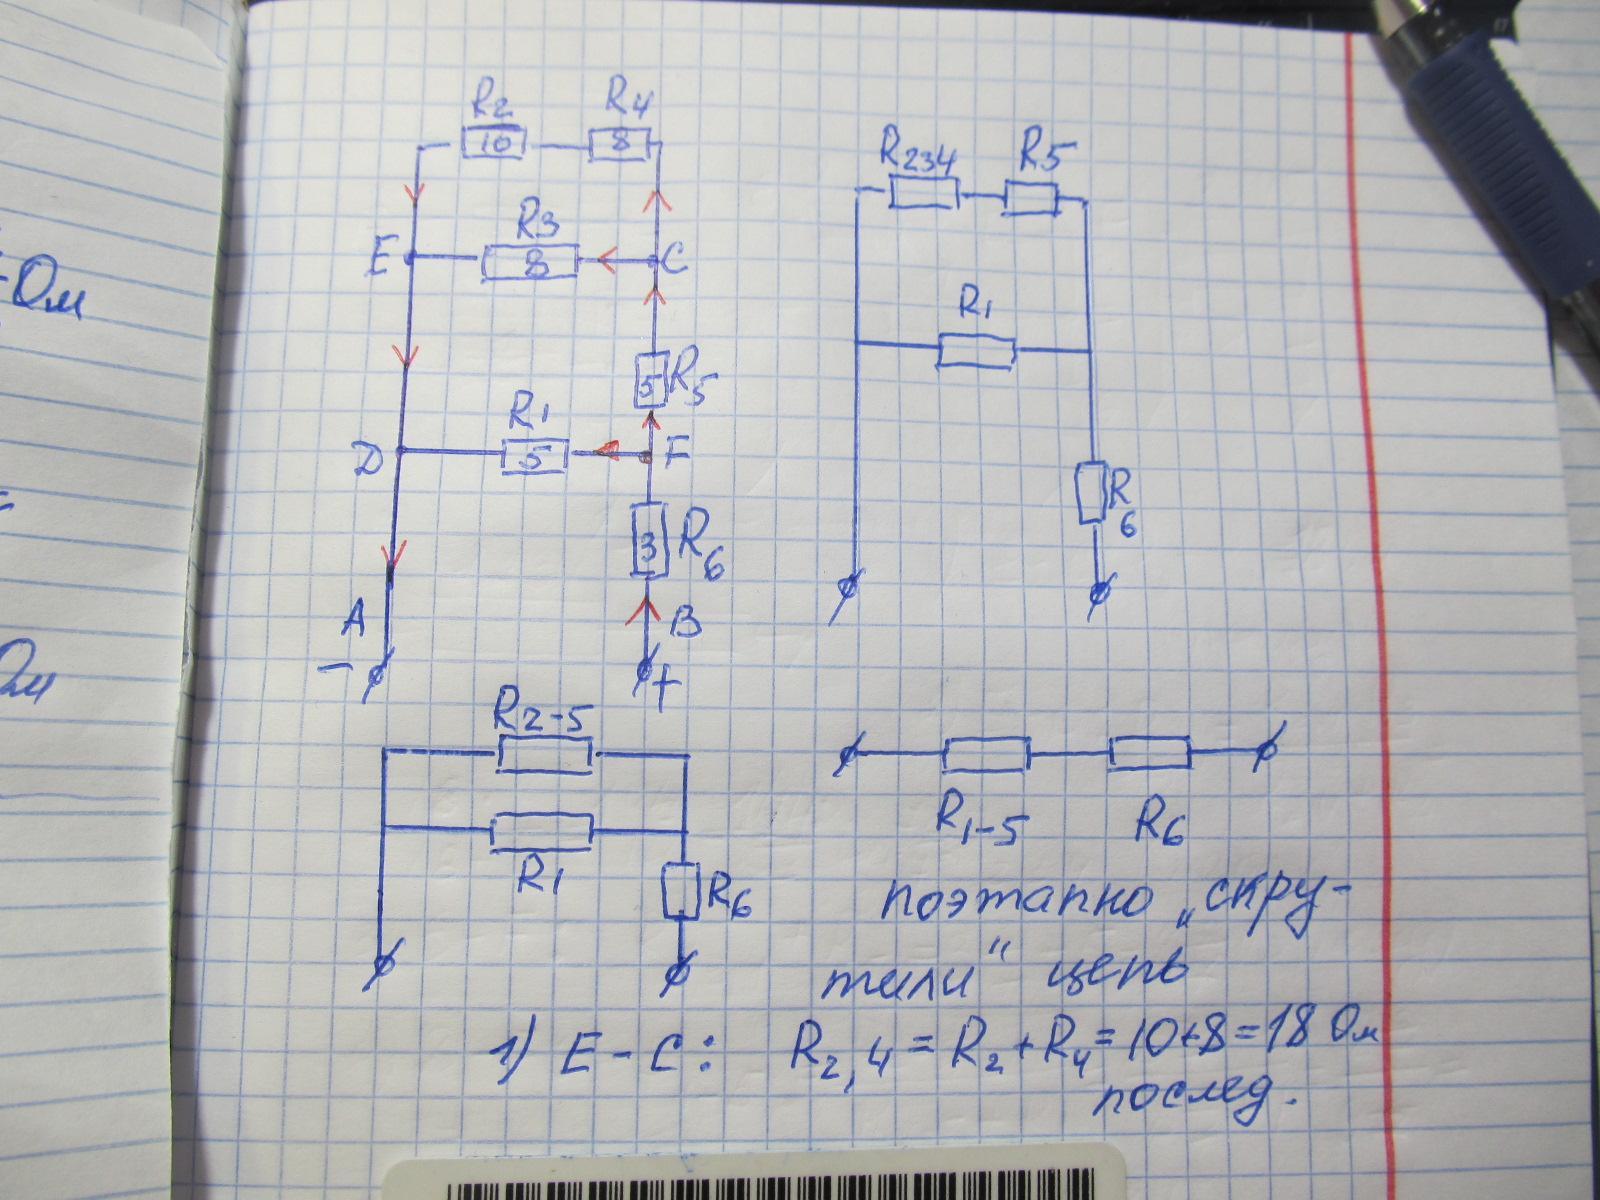 R2 R4
10 8
R3
E 8 C
5 R5
R1
D 5 F
3 R6
A B
- +
R234 R5
R1
R6
R2-5
R1
R6
R1-5 R6
поэтапно „скру-
тили" цепь
1) E - C: R2,4 = R2 + R4 = 10+8 = 18 Ом
послед.
Ом
Ом